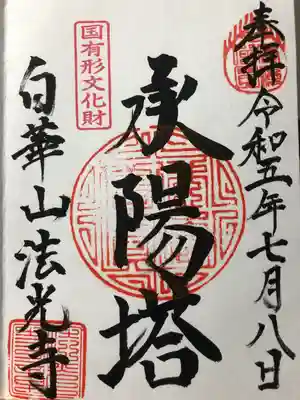 奉拝 令和五年七月八日
国有形文化財
承陽塔
白華山法光寺